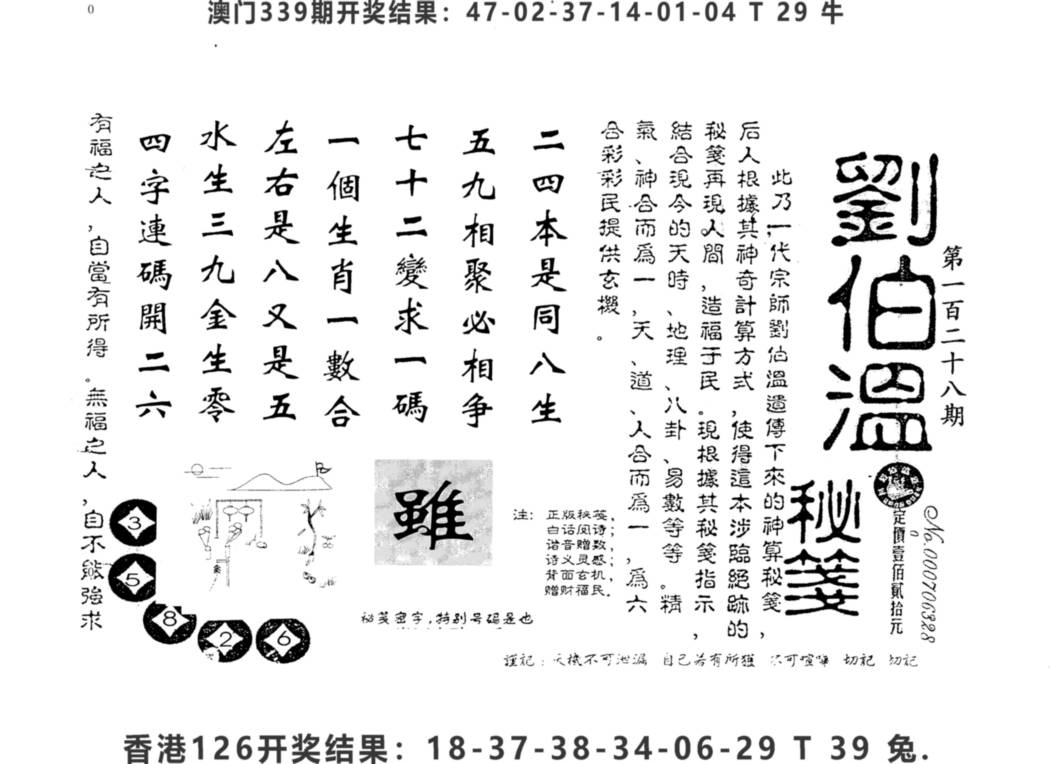 澳门339期开奖结果：47-02-37-14-01-04 T 29 牛
0
劉伯溫
秘箋
第一百二十八期
定價壹佰貳拾元
No.000706328
此乃一代宗師劉伯溫遺傳下來的神算秘箋，
后人根據其神奇計算方式，使得這本涉臨絕跡的
秘箋再現人間，造福于民。現根據其秘箋指示，
結合現今的天時、地理、八卦、易數等等。精
氣、神合而爲一，天、道、人合而爲一，爲六
合彩彩民提供玄機。
二四本是同八生
五九相聚必相争
七十二變求一碼
一個生肖一數合
左右是八又是五
水生三九金生零
四字連碼開二六
有福之人，自當有所得。無福之人，自不能強求
3
5
8
2
6
雖
秘笺密字，特别号码是也
注：正版秘笺，
白话闵诗；
谐音赠数，
诗义灵感；
背面玄机，
赠财福民。
謹記：天機不可泄漏 自己若有所獲 不可喧嘩 切記 切記
香港126开奖结果：18-37-38-34-06-29 T 39 兔.